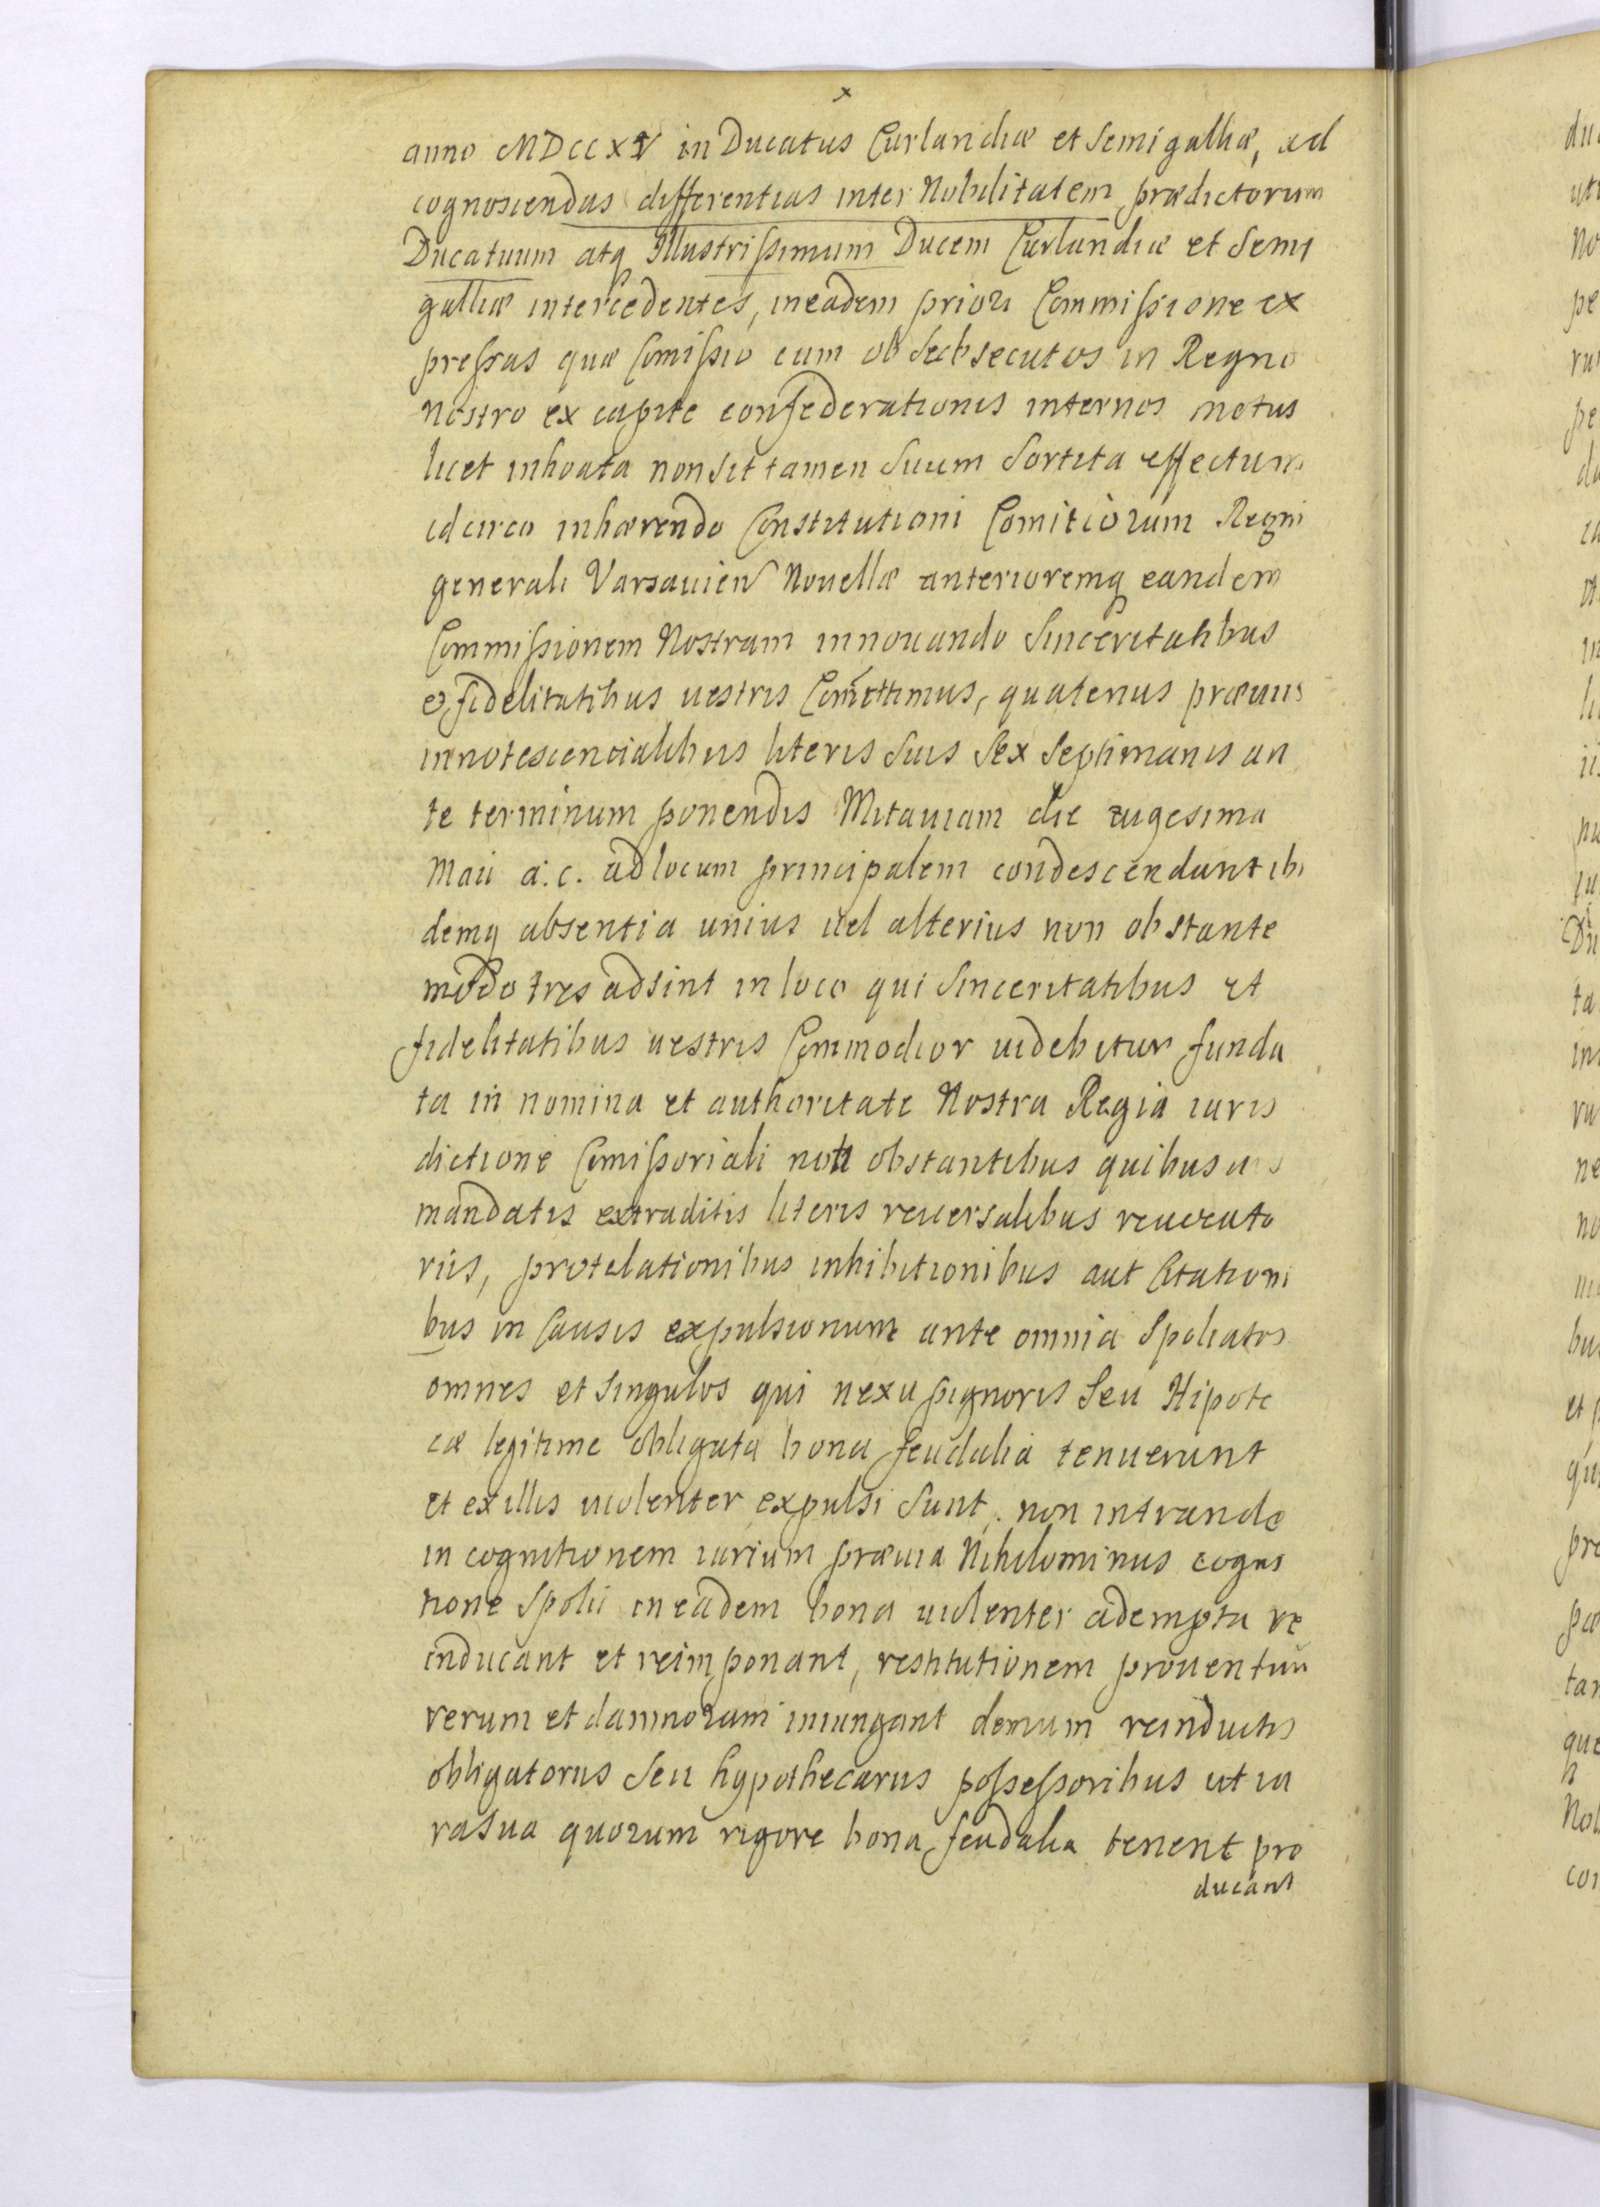 x
anno MDCCXV in Ducatus Curlandiæ et Semigalliæ, ad
cognoscendas differentias inter Nobilitatem prædictorum
Ducatuum atq Illustrissimum Ducem Curlandiæ et Semi
galliæ intercedentes, in eadem priori Commissione ex
pressas quæ Comissio cum ob subsecutos in Regno
Nostro ex capite confederationis internos motus
licet inhoata non sit tamen Suum Sortita effectum
idcirco inhærendo Constitutioni Comitiorum Regni
generali Varsavien Nouellæ anterioremq eandem
Commissionem Nostram innouando Sinceritatibus
et fidelitatibus uestris Comittimus, quatenus præuiis
innotescencialibus literis Suis Sex Septimanis an
te terminum ponendis Mitauiam die uigesima
Maii a: c. ad locum principalem condescendant ibi
demq absentia unius uel alterius non obstante
modo tres adsint in loco qui Sinceritatibus et
fidelitatibus uestris Commodior uidebitur funda
ta in nomina et authoritate Nostra Regia iuris
dictione Comissoriali non obstantibus quibusuis
mandatis extraditis literis reuersalibus reuocato
riis, protelationibus inhibitionibus aut Citationi
bus in Causis expulsionum ante omnia Spoliatos
omnes et Singulos qui nexu pignoris Seu Hipote
cæ legitime obligata bona feudalia tenuerunt
et ex illis uiolenter expulsi Sunt, non intrando
in cognitionem iurium præuia Nihilominus cogni
tione Spolii in eadem bona uiolenter adempta re
inducant et reimponant, restitutionem prouentuu
rerum et damnorum iniungant demum reinductis
obligatoriis Seu hypothecariis possessoribus ut iu
ra Sua quorum uigore bona feudalia tenent pro
ducant